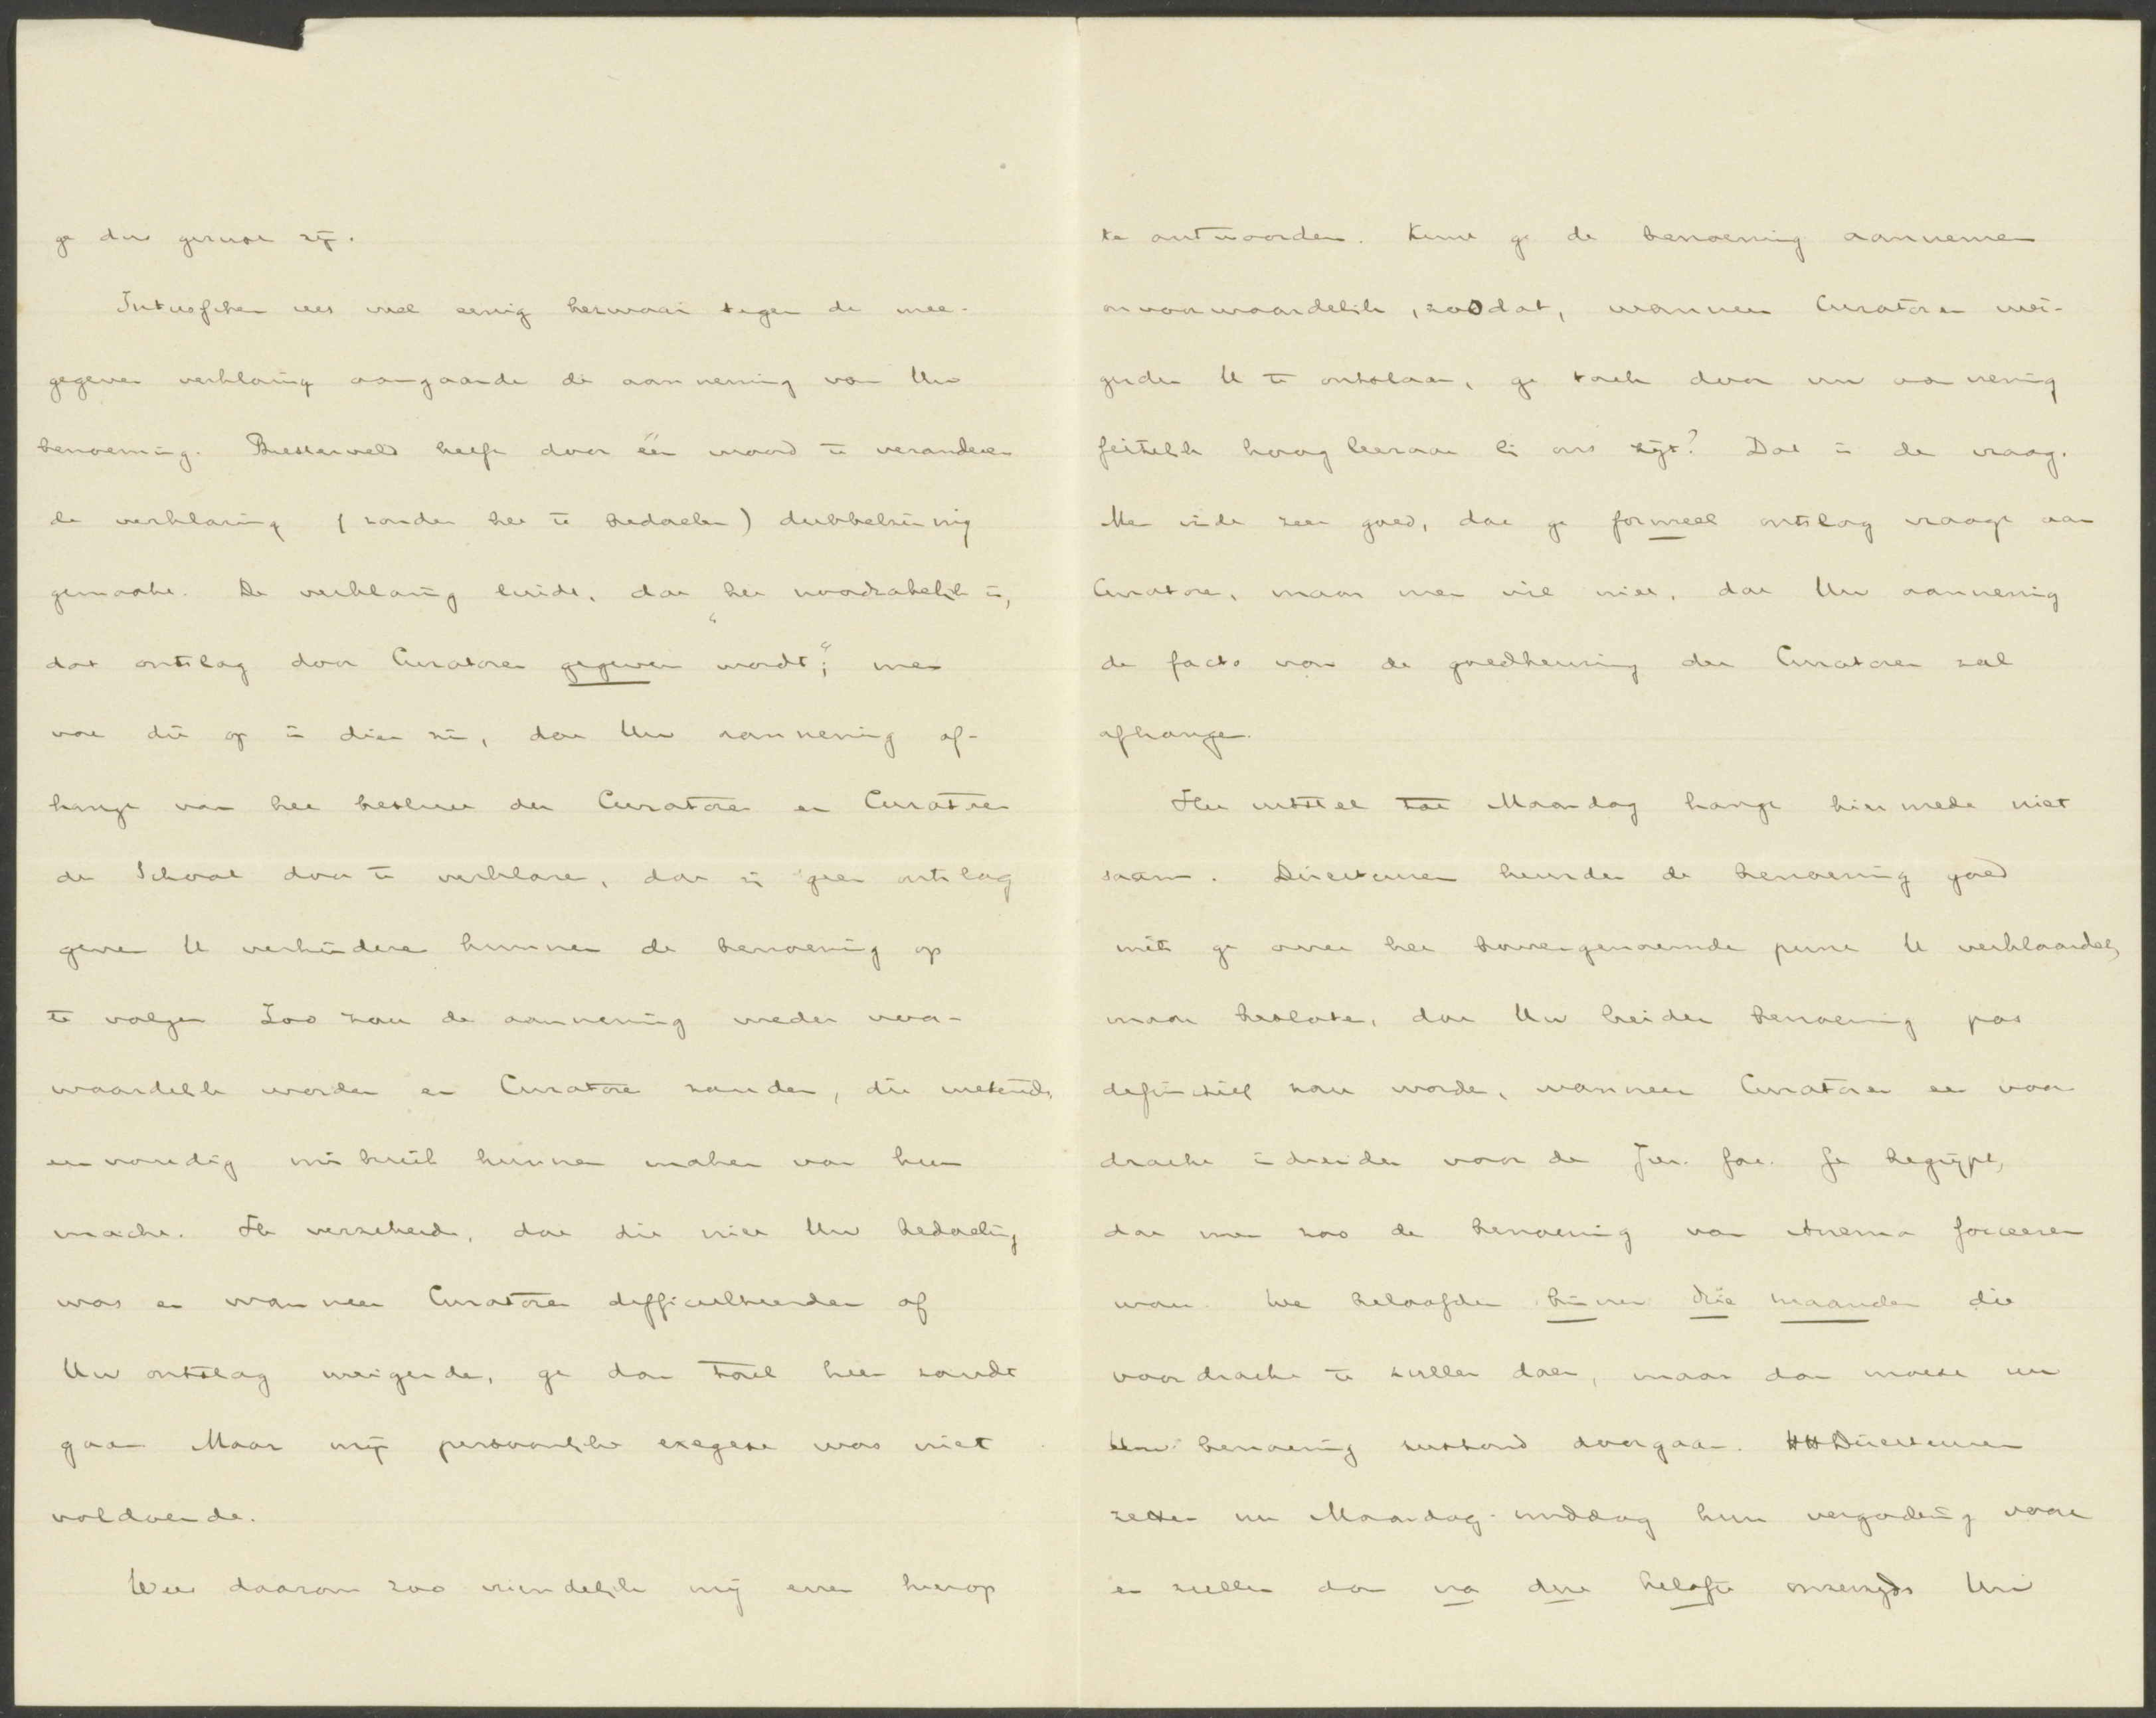 ge dus gerust zijn.
Intusschen rees wel eenig bezwaar tegen de mee-
gegeven verklaring aangaande de aanneming van Uw
benoeming. Biesterveld heeft door één woord te veranderen
de verklaring (zonder het te bedoelen) dubbelzinnig
gemaakt. De verklaring luidt, dat het noodzakelijk is,
dat "ontslag door Curatoren gegeven wordt"; men
vat dit op in dien zin, dat Uw aanneming af-
hangt van het besluit der Curatoren en Curatoren
der School door te verklaren, dat zij geen ontslag
geven U verhinderen kunnen de benoeming op
te volgen. Zoo zou de aanneming weder voor-
waardelijk worden en Curatoren zouden, dit wetend,
eenvoudig misbruik kunnen maken van hun
macht. Ik verzekerde, dat dit niet Uw bedoeling
was en wanneer Curatoren difficulteerden of
Uw ontslag weigerden, ge dan toch heen zoudt
gaan. Maar mijn persoonlijke exegese was niet
voldoende.
Wees daarom zoo vriendelijk mij even hierop
te antwoorden. Kunt ge de benoeming aannemen
onvoorwaardelijk, zoodat, wanneer Curatoren wei-
gerden U te ontslaan, ge toch door uw aanneming
feitelijk hoogleeraar bij ons zijt? Dat is de vraag.
Men vindt zeer goed, dat ge formeel ontslag vraagt aan
Curatoren, maar men wil niet, dat Uw aanneming
de facto van de goedkeuring der Curatoren zal
afhangen.
Het uitstel tot Maandag hangt hiermede niet
saam. Directeuren keurden de benoeming goed
mits ge over het bovengenoemde punt U verklaardet,
maar besloten, dat Uw beider benoeming pas
definitief zou worden, wanneer Curatoren een voor-
dracht indienden voor de Jur. fac. Ge begrijpt,
dat men zoo de benoeming van Anema forceeren
wou. We beloofden binnen drie maanden die
voordracht te zullen doen, maar dan moest nu
Uw benoeming doorgaan. HH Directeuren
zetten nu Maandag-middag hun vergadering voort
en zullen dan na deze belofte onzerzijds Uw